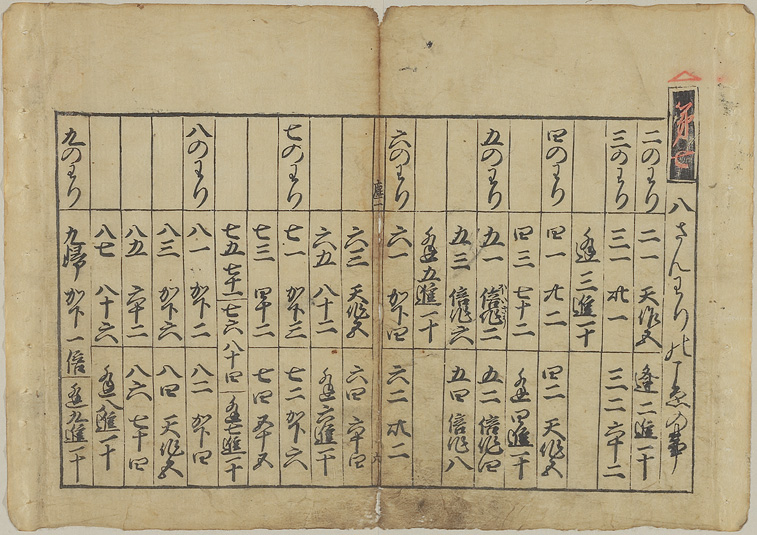 第七
八さんわりの事
二のわり 二一 天作五 逢二進一十
三のわり 三一 卅一 三二 六十二
逢三進一十
四のわり 四一 廿二 四二 天作五
四三 七十二 逢四進一十
五のわり 五一 倍作二 五二 倍作四
五三 倍作六 五四 倍作八
逢五進一十
六のわり 六一 加下四 六二 卅二
六三 天作五 六四 六十四
六五 八十二 逢六進一十
七のわり 七一 加下三 七二 加下六
七三 四十二 七四 五十五
七五 七十一 七六 八十四 逢七進一十
八のわり 八一 加下二 八二 加下四
八三 加下六 八四 天作五
八五 六十二 八六 七十四
八七 八十六 逢八進一十
九のわり 九帰 加下一倍 逢九進一十